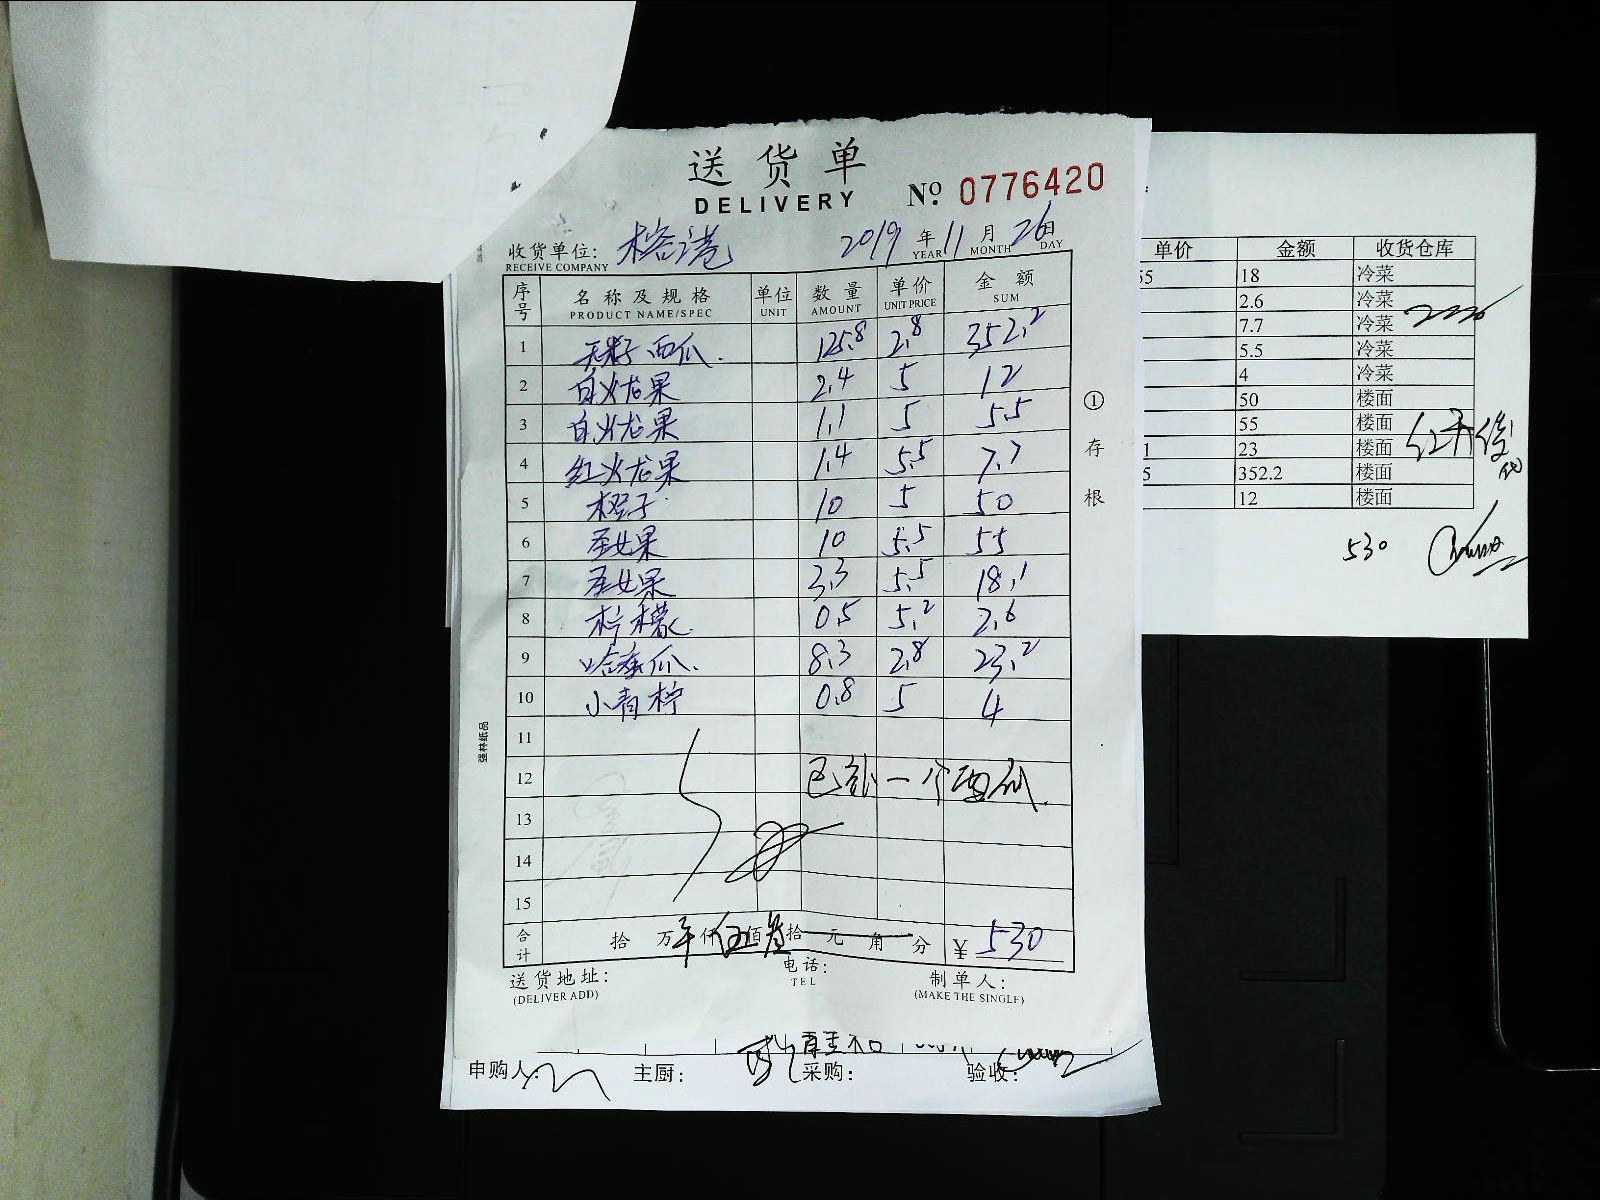 送货单
DELIVERY
No. 0776420
收货单位: 榕港 2019 年 11 月 26 日
RECEIVE COMPANY YEAR MONTH DAY
序号 名称及规格 单位 数量 单价 金额
PRODUCT NAME/SPEC UNIT AMOUNT UNIT PRICE SUM
1 无籽西瓜. 125.8 2.8 352.2
2 白火龙果 2.4 5 12
3 白火龙果 1.1 5 5.5
4 红火龙果 1.4 5.5 7.7
5 橙子 10 5 50
6 圣女果 10 5.5 55
7 圣女果 3.3 5.5 18.1
8 柠檬 0.5 5.2 2.6
9 哈密瓜. 8.3 2.8 23.2
10 小青柠 0.8 5 4
11
12 一个西瓜.
13
14
15
合计 拾 万 仟 伍 佰 叁 拾 元 角 分 ¥ 530
①存根
强林纸品
送货地址: 电话: 制单人:
(DELIVER ADD) TEL (MAKE THE SINGLE)
申购人: 主厨: 采购: 验收:
单价 金额 收货仓库
55 18 冷菜
2.6 冷菜
7.7 冷菜
5.5 冷菜
4 冷菜
50 楼面
55 楼面
1 23 楼面
5 352.2 楼面
12 楼面
530